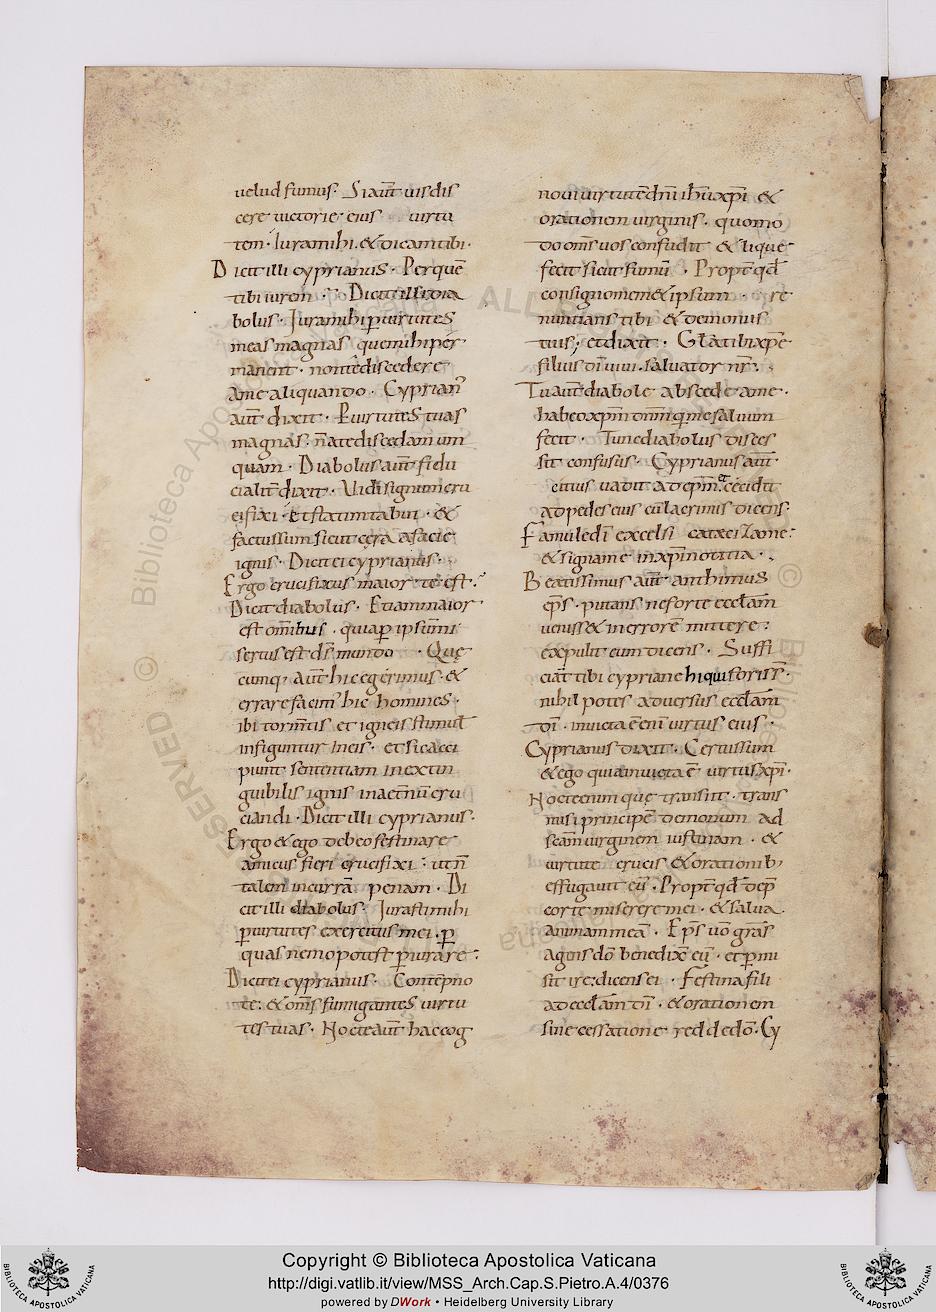 uelud fumus. Si aut̄ uis dis
cere uictorie eius uirtu
tem. Iura mihi. & dicam tibi.
Dicit illi cyprianus. Per quē
tibi iurem. Dicit illi dia
bolus. Iura mihi p̄ uirtutes
meas magnas quę mihi per
manent. non te discedere
a me aliquando. Cyprian᾽
aut̄ dixit. P̄ uirtutes tuas
magnas. ñ a te discedam um
quam. Diabolus aut̄ fidu
cialit̄ dixit. Uidi signum cru
cifixi. et statim tabui. &
factus sum sicut cera a facie
ignis. Dicit ei cyprianus.
Ergo crucifixus maior te est.
Dicit diabolus. Etiam maior
est omībus. quia p̄ ipsum
seruus est ds̄ mundo. Quę
cumq; aut̄ hic egerimus. &
errare facim᾽ hic homines.
ibi torm̄tis et igneis stimul̄
infiguntur in eis. et sic acci
piunt sententiam inextin
guibilis ignis in aet̄nū cru
ciandi. Dicit illi cyprianus.
Ergo & ego debeo festinare
amicus fieri crucifixi. ut ñ
talem incurrā penam. Di
cit illi diabolus. Iurasti mihi
p̄ uirtutes exercitus mei. p̄
quas nemo potest p̄iurare.
Dicit ei cyprianus. Contēpno
te. & om̄s fumigantes uirtu
tes tuas. Nocte aut̄ hac cog
noui uirtutē dn̄i ihū xp̄i &
orationem uirginis. quomo
do om̄s uos confudit & lique
fecit sicut fumū. Propt̄ qd̄
consigno me & ipsum re
nuntians tibi & demoniis
tuis; et dixit. Gl̄a tibi xp̄e
filius dī uiui. saluator nr̄.
Tu aut̄ diabole abscede a me.
habeo xp̄m dn̄m q̄ me saluum
fecit. Tunc diabolus disces
sit confusus. Cyprianus aut̄
citius uadit ad ep̄m. & cecidit
ad pedes eius cū lacrimis dicens.
Famule dī excelsi catecizame.
& signa me in xp̄i notitia.
Beatissimus aut̄ anthimus
ep̄s. putans ne forte eccl̄am
uenisset in errorē mittere.
expulit eum dicens. Suffi
ciat tibi cypriane hi qui foris s̄.
nihil potes aduersus eccl̄am
dī. inuicta ē enī uirtus eius.
Cyprianus dixit. Certus sum
& ego quia inuicta ē uirtus xp̄i.
Nocte enim quę transiit. trans
misi principē demonum ad
sc̄am uirginem iustinam. &
uirtute crucis & orationib;
effugauit eū. Propt̄ qd̄ dep̄
cor te miserere mei. & salua
animam meā. Ep̄s uo gr̄as
agens dō benedixᷓ eū. et p̄mi
sit ire. dicens ei. Festina fili
ad eccl̄am dī. & orationem
sine cessatione redde dō. Cy
Copyright © Biblioteca Apostolica Vaticana
http://digi.vatlib.it/view/MSS_Arch.Cap.S.Pietro.A.4/0376
powered by DWork • Heidelberg University Library